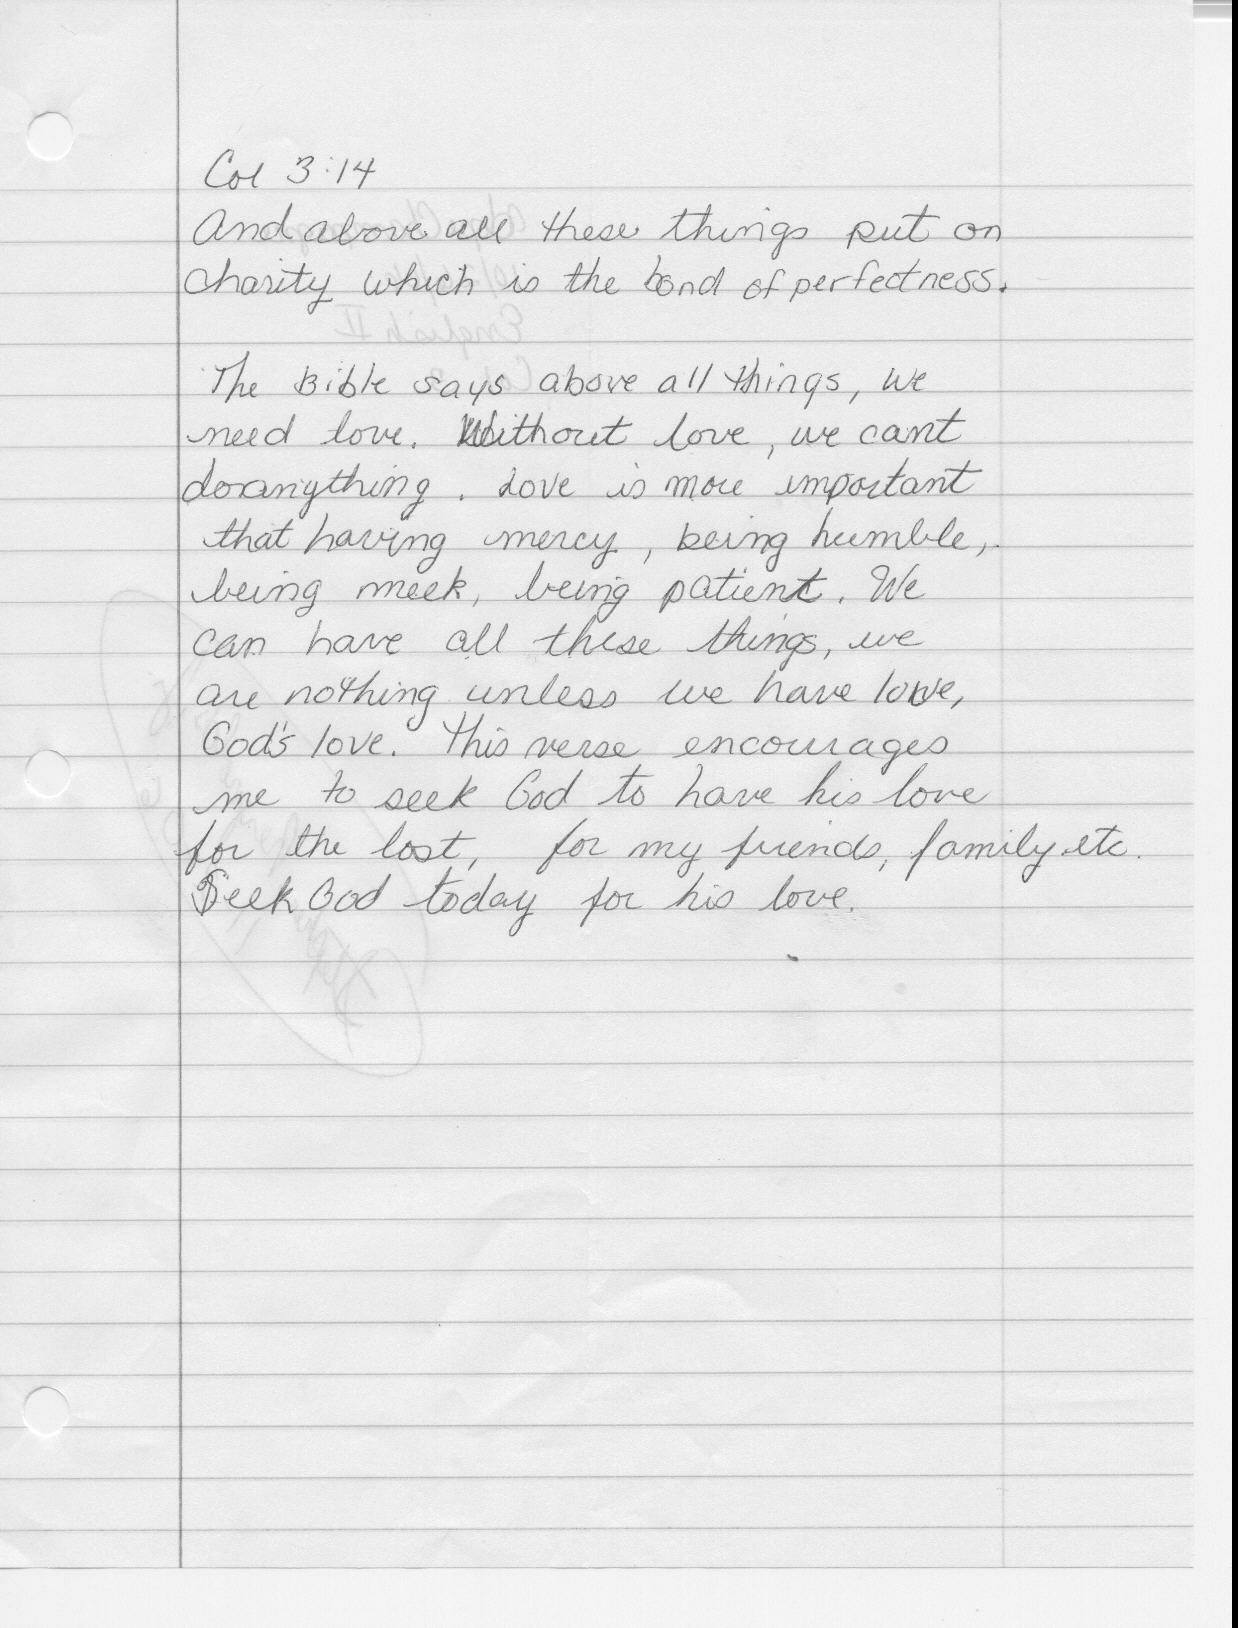 Col 3:14
And above all these things put on
charity which is the bond of perfectness.
The Bible says above all things, we
need love. Without love, we cant
do anything. Love is more important
that having mercy, being humble,
being meek, being patient. We
can have all these things, we
are nothing unless we have love,
God's love. This verse encourages
me to seek God to have his love
for the lost, for my friends, family etc.
Seek God today for his love.
English II